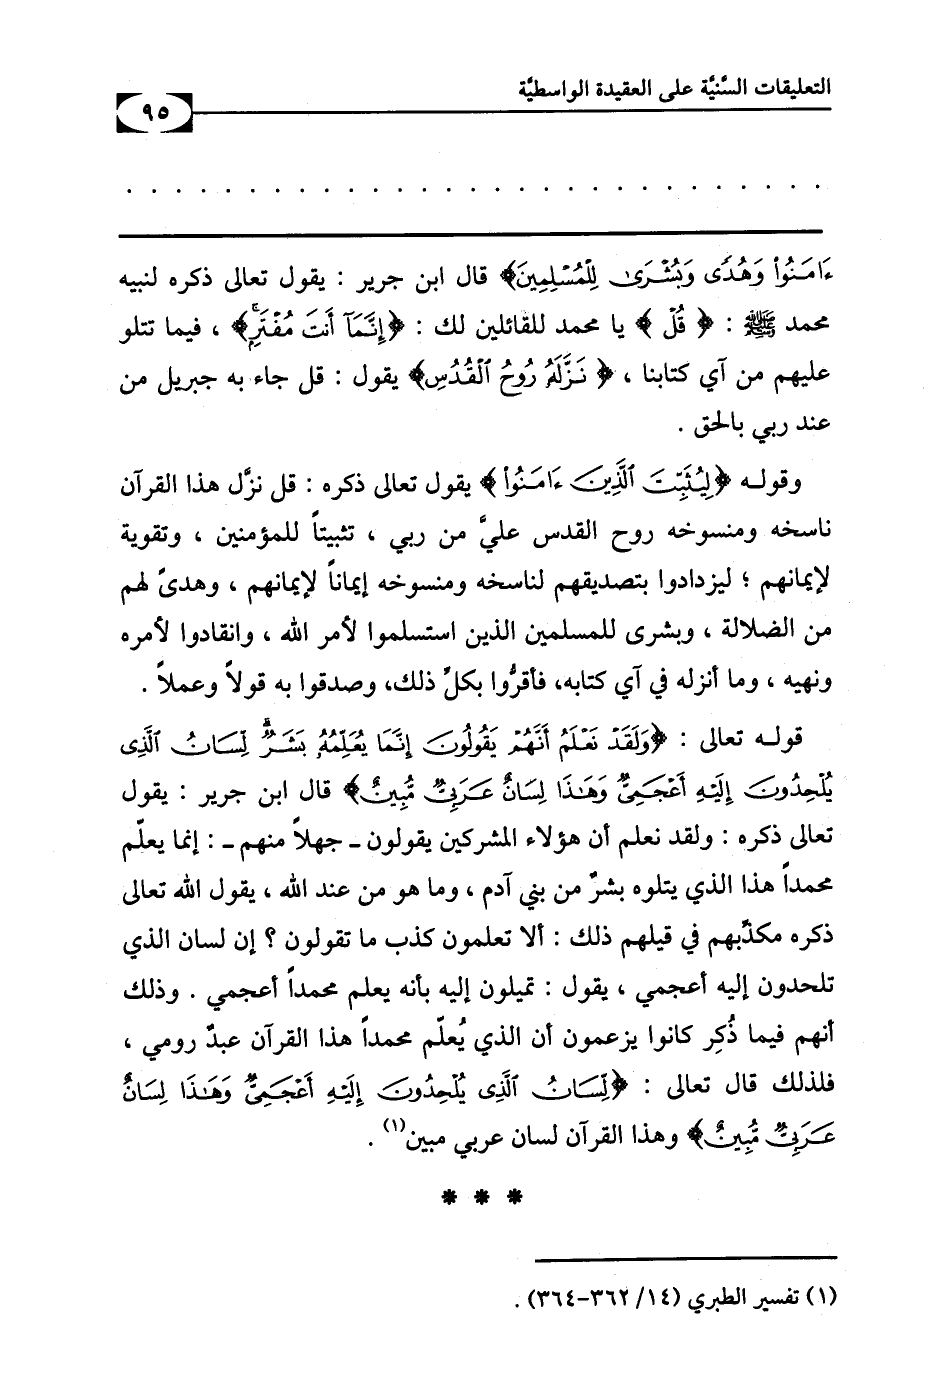 التعليقات السَّنيَّة على العقيدة الواسطيَّة
٩٥
ءَامَنُواْ وَهُدًى وَبُشْرَىٰ لِلْمُسْلِمِينَ﴾ قال ابن جرير : يقول تعالى ذكره لنبيه
محمد ﷺ : ﴿ قُلْ ﴾ يا محمد للقائلين لك : ﴿إِنَّمَآ أَنتَ مُفْتَرٍۭ﴾ ، فيما تتلو
عليهم من آي كتابنا ، ﴿ نَزَّلَهُۥ رُوحُ ٱلْقُدُسِ﴾ يقول : قل جاء به جبريل من
عند ربي بالحق .
وقوله ﴿لِيُثَبِّتَ ٱلَّذِينَ ءَامَنُواْ ﴾ يقول تعالى ذكره : قل نزَّل هذا القرآن
ناسخه ومنسوخه روح القدس عليَّ من ربي ، تثبيتاً للمؤمنين ، وتقوية
لإيمانهم ؛ ليزدادوا بتصديقهم لناسخه ومنسوخه إيماناً لإيمانهم ، وهدىً لهم
من الضلالة ، وبشرى للمسلمين الذين استسلموا لأمر الله ، وانقادوا لأمره
ونهيه ، وما أنزله في آي كتابه، فأقرُّوا بكلِّ ذلك، وصدقوا به قولاً وعملاً .
قوله تعالى : ﴿وَلَقَدْ نَعْلَمُ أَنَّهُمْ يَقُولُونَ إِنَّمَا يُعَلِّمُهُۥ بَشَرٌ ۗ لِّسَانُ ٱلَّذِى
يُلْحِدُونَ إِلَيْهِ أَعْجَمِىٌّ وَهَٰذَا لِسَانٌ عَرَبِىٌّ مُّبِينٌ﴾ قال ابن جرير : يقول
تعالى ذكره : ولقد نعلم أن هؤلاء المشركين يقولون ـ جهلاً منهم ـ : إنما يعلّم
محمداً هذا الذي يتلوه بشرٌ من بني آدم ، وما هو من عند الله ، يقول الله تعالى
ذكره مكذّبهم في قيلهم ذلك : ألا تعلمون كذب ما تقولون ؟ إن لسان الذي
تلحدون إليه أعجمي ، يقول : تميلون إليه بأنه يعلم محمداً أعجمي . وذلك
أنهم فيما ذُكِر كانوا يزعمون أن الذي يُعلّم محمداً هذا القرآن عبدٌ رومي ،
فلذلك قال تعالى : ﴿لِّسَانُ ٱلَّذِى يُلْحِدُونَ إِلَيْهِ أَعْجَمِىٌّ وَهَٰذَا لِسَانٌ
عَرَبِىٌّ مُّبِينٌ﴾ وهذا القرآن لسان عربي مبين(١) .
* * *
(١) تفسير الطبري (١٤/ ٣٦٢-٣٦٤) .